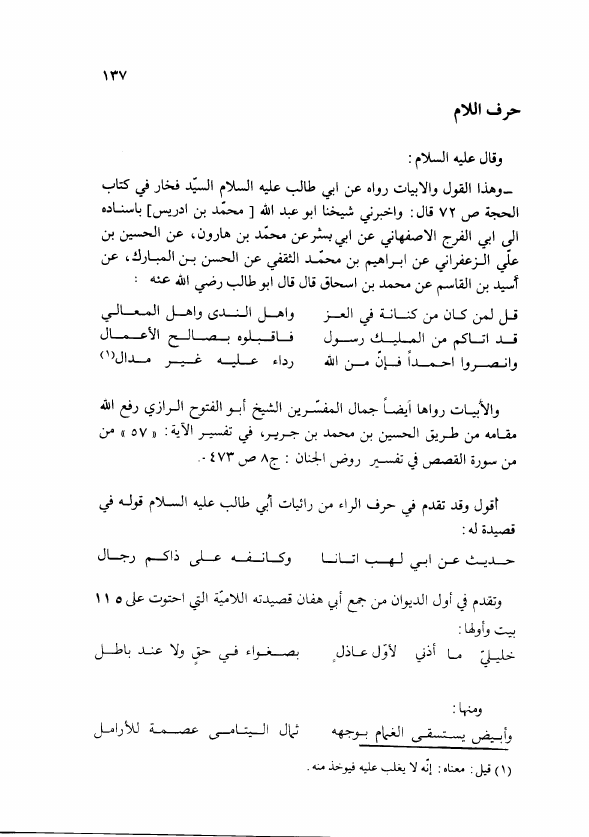 ١٣٧
حرف اللام
وقال عليه السلام :
ــ وهذا القول والابيات رواه عن ابي طالب عليه السلام السيّد فخار في كتاب
الحجة ص ٧٢ قال : واخبرني شيخنا ابو عبد الله [ محمّد بن ادريس ] باسناده
الى ابي الفرج الاصفهاني عن ابي بشر عن محمّد بن هارون، عن الحسين بن
علّي الزعفراني عن ابراهيم بن محمّد الثقفي عن الحسن بن المبارك، عن
أسيد بن القاسم عن محمد بن اسحاق قال قال ابو طالب رضي الله عنه :
قل لمن كان من كنانة في العز واهل الندى واهل المعالي
قد اتاكم من المليك رسول فاقبلوه بصالح الأعمال
وانصروا احمداً فإنّ من الله رداء عليه غير مدال(١)
والأبيات رواها أيضاً جمال المفسّرين الشيخ أبو الفتوح الرازي رفع الله
مقامه من طريق الحسين بن محمد بن جرير، في تفسير الآية : « ٥٧ » من
من سورة القصص في تفسير روض الجنان : ج٨ ص ٤٧٣ ٠.
أقول وقد تقدم في حرف الراء من رائيات أبي طالب عليه السلام قوله في
قصيدة له :
حديث عن ابي لهب اتانا وكانفه على ذاكم رجال
وتقدم في أول الديوان من جمع أبي هفان قصيدته اللاميّة التي احتوت على ١١٥
بيت وأولها :
خليليّ ما أذني لأوّل عاذلٍ بصغواء في حقٍ ولا عند باطل
ومنها :
وأبيض يستسقى الغمام بوجهه ثمال اليتامى عصمة للأرامل
(١) قيل : معناه : إنّه لا يغلب عليه فيوخذ منه .